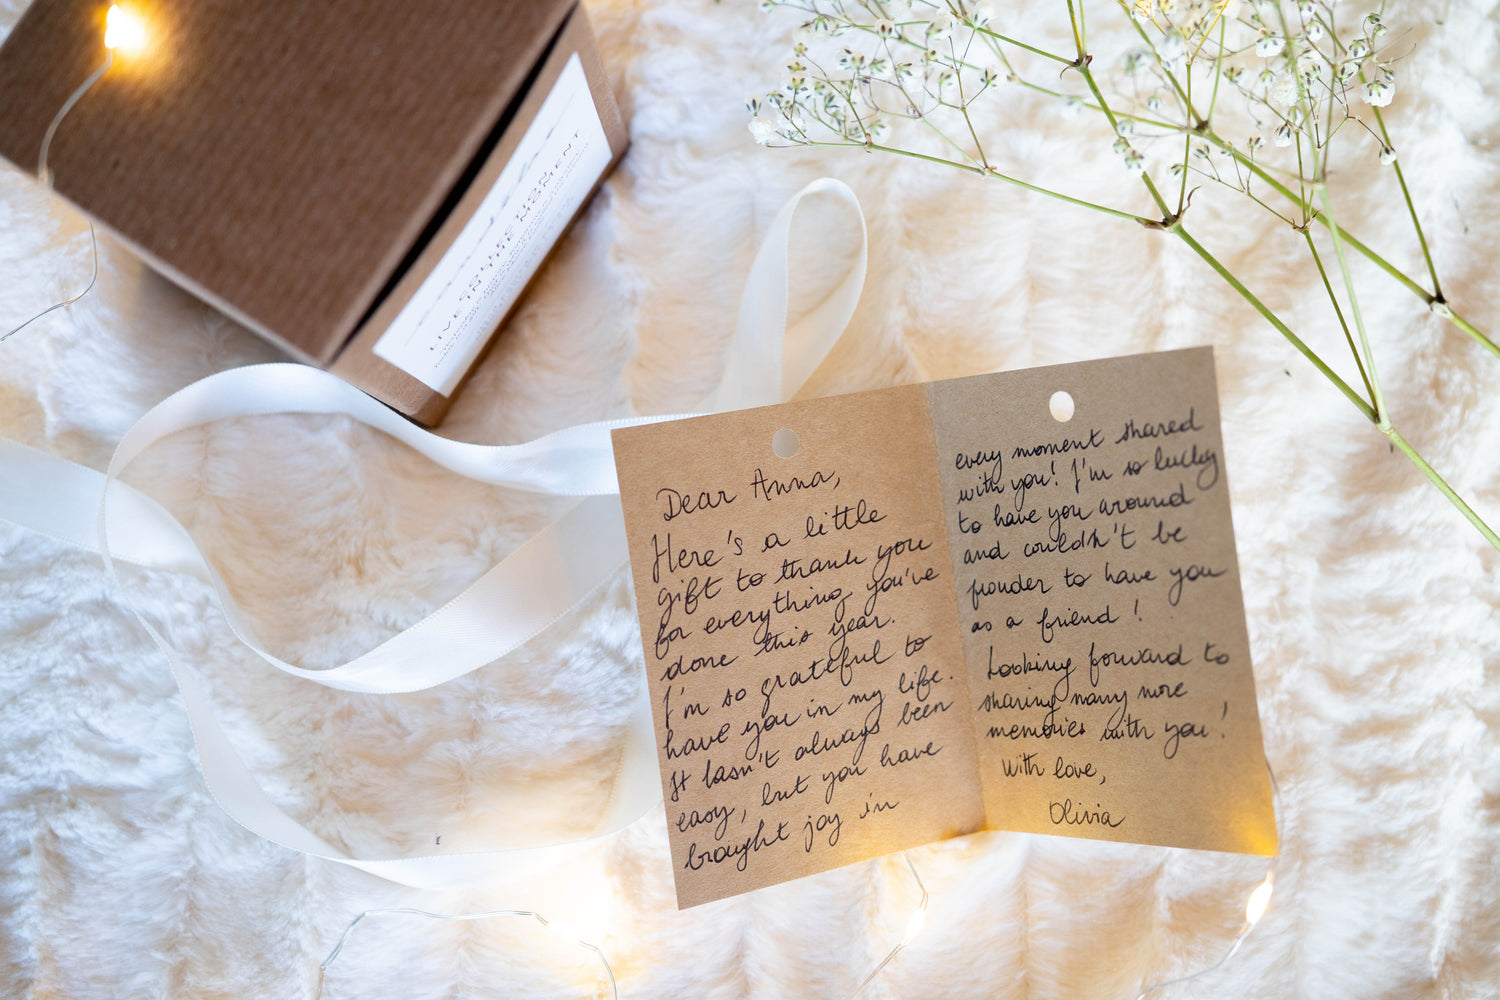 COLLECTION
LIVE IN THE MOMENT
Dear Anna,
Here's a little
gift to thank you
for everything you've
done this year.
I'm so grateful to
have you in my life.
It hasn't always been
easy, but you have
brought joy in
every moment shared
with you! I'm so lucky
to have you around
and couldn't be
prouder to have you
as a friend!
Looking forward to
sharing many more
memories with you!
With love,
Olivia